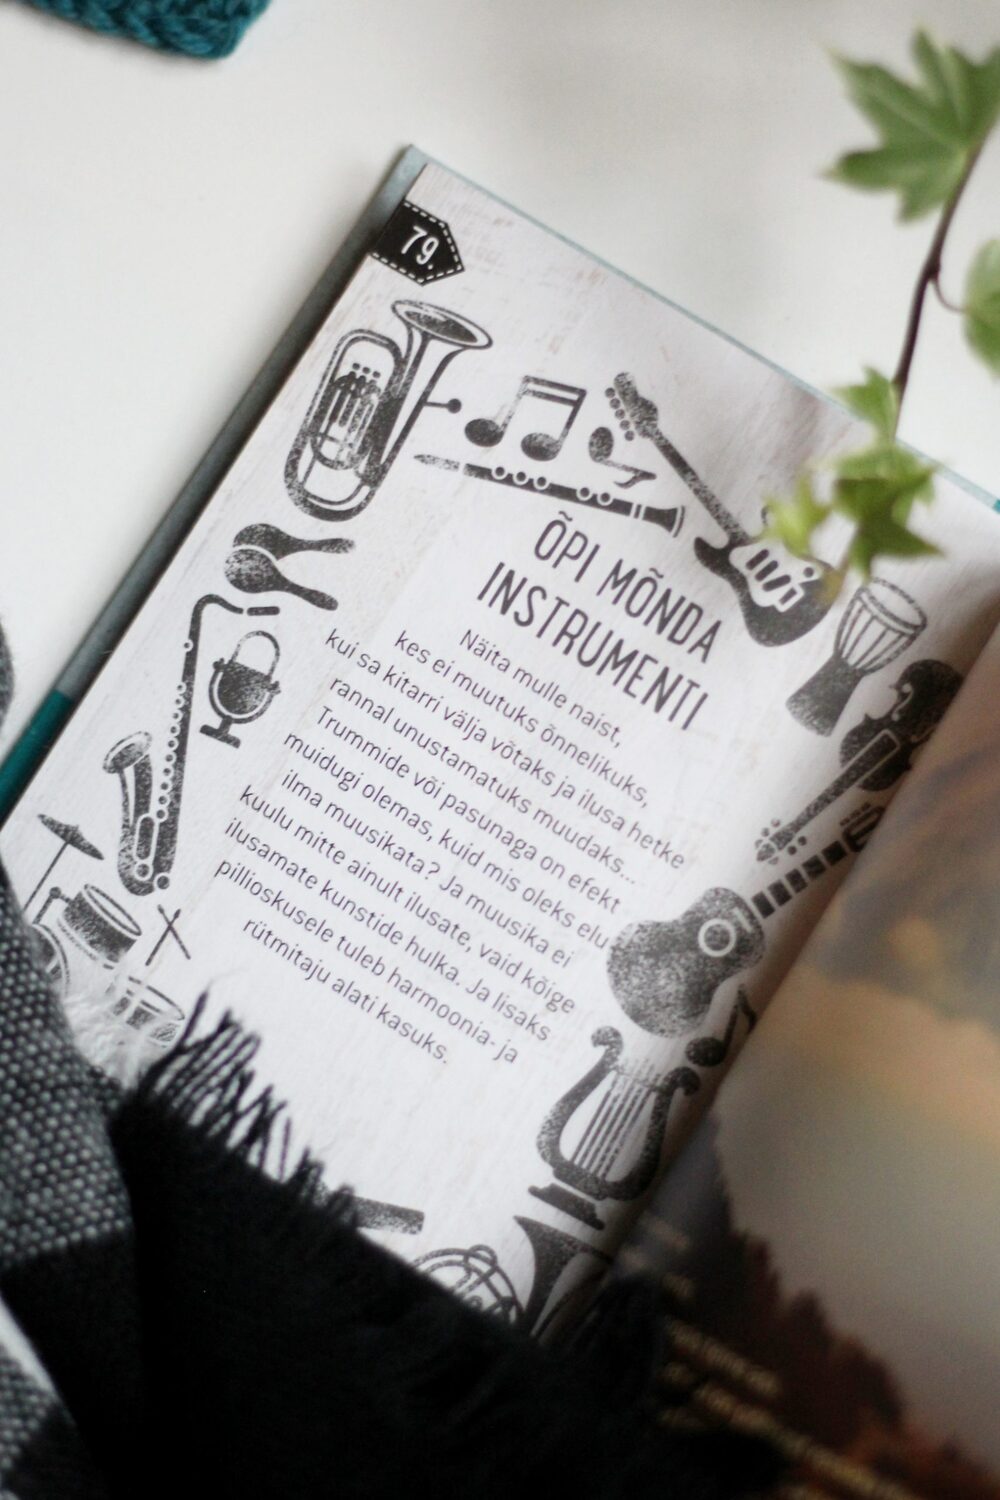 79.
ÕPI MÕNDA
INSTRUMENTI
Näita mulle naist,
kes ei muutuks õnnelikuks,
kui sa kitarri välja võtaks ja ilusa hetke
rannal unustamatuks muudaks...
Trummide või pasunaga on efekt
muidugi olemas, kuid mis oleks elu
ilma muusikata? Ja muusika ei
kuulu mitte ainult ilusate, vaid kõige
ilusamate kunstide hulka. Ja lisaks
pillioskusele tuleb harmoonia- ja
rütmitaju alati kasuks.